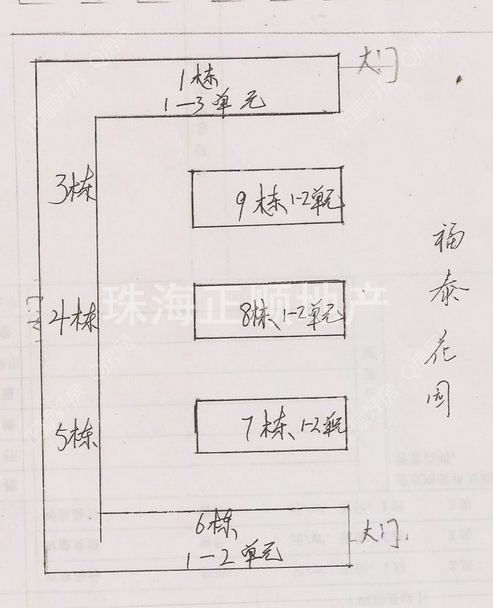 1栋
1-3单元
大门
3栋
9栋1-2单元
福泰花园
珠海正顺地产
4栋
8栋1-2单元
5栋
7栋1-2单元
6栋
1-2单元
大门